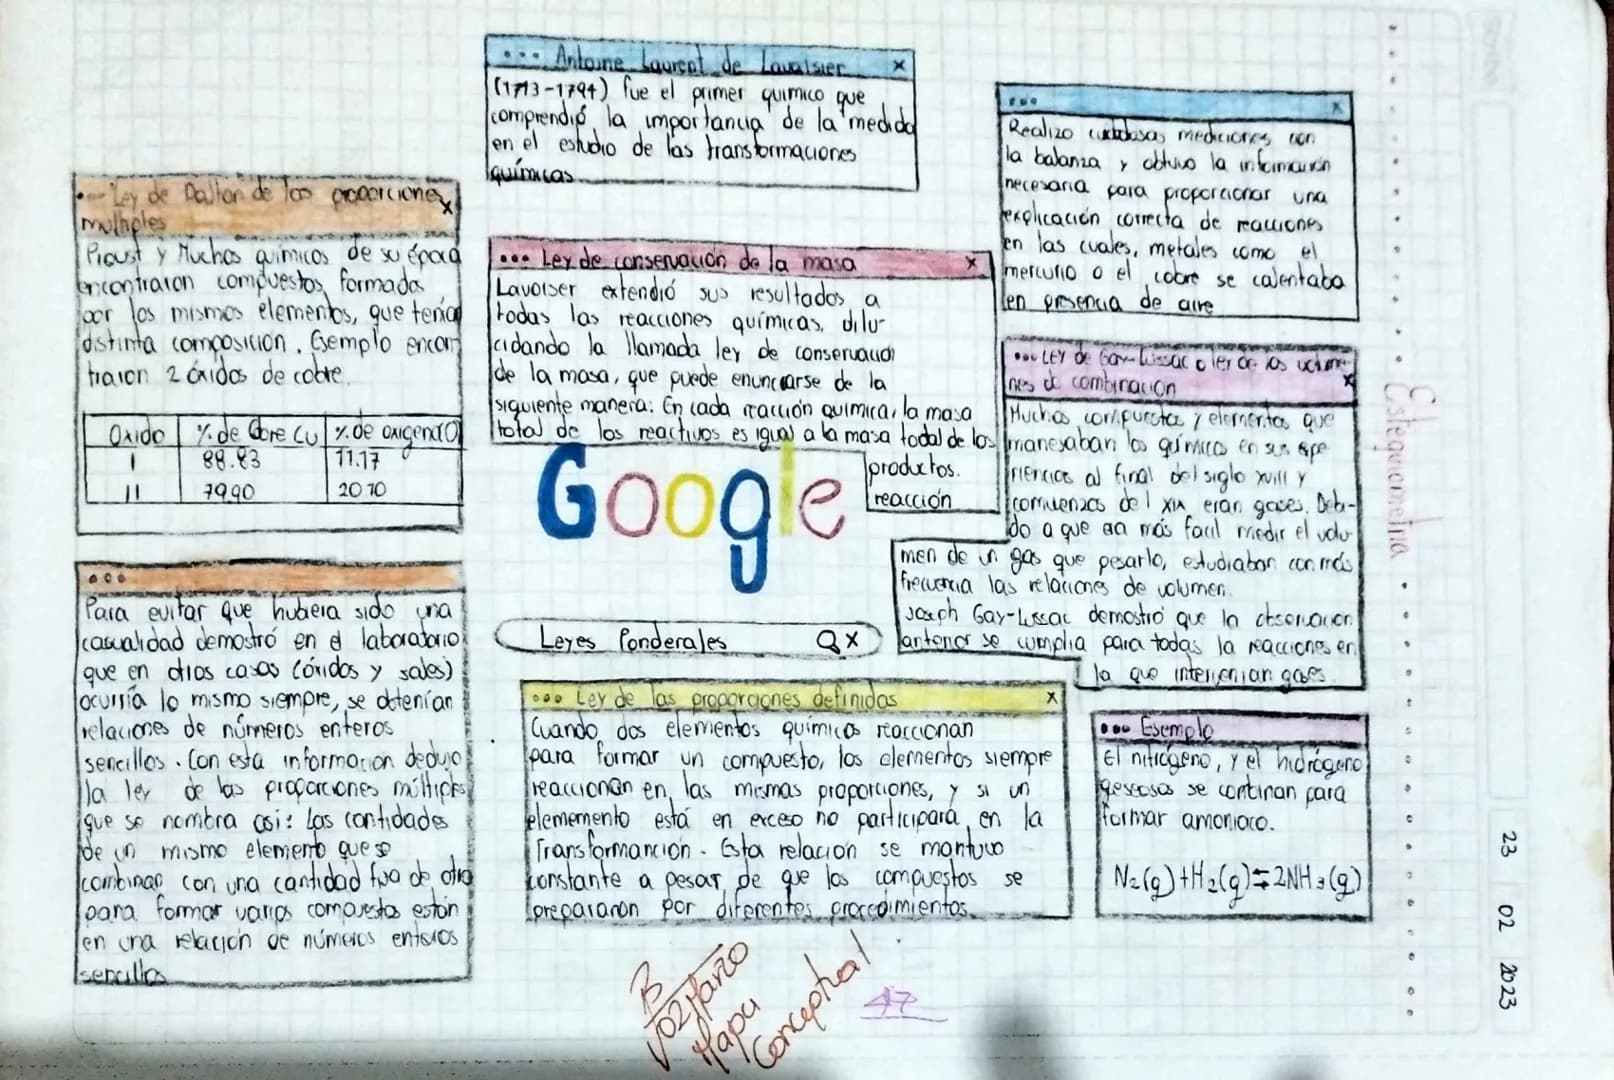 ••• Antoine Laurent de Lavoisier x
(1713-1794) fue el primer químico que
comprendió la importancia de la medida
en el estudio de las transformaciones
químicas
••• x
Realizo cuidadosas mediciones con
la balanza y obtuvo la información
necesaria para proporcionar una
explicación correcta de reacciones
en las cuales, metales como el
mercurio o el cobre se calentaba
en presencia de aire
••• Ley de Dalton de las proporciones x
multiples
Proust y Muchos quimicos de su época
encontraron compuestos formada
por los mismos elementos, que tenia
distinta composicion. Esemplo encon
traron 2 óxidos de cobre.
Oxido % de Cobre Cu % de oxigeno(O)
I 88.83 11.17
II 79.90 20 10
•••
Para evitar que hubiera sido una
casualidad demostró en el laboratorio
que en otros casos (óxidos y sales)
ocurría lo mismo siempre, se obtenían
relaciones de números enteros
sencillos. Con esta informacion dedujo
la ley de las proporciones múltiples
que se nombra asi: Las cantidades
de un mismo elemento que se
combinan con una cantidad fija de otro
para formar varios compuestos están
en una relación de números enteros
sencillos
••• Ley de conservación de la masa x
Lavoiser extendió sus resultados a
todas las reacciones químicas, dilu-
cidando la llamada ley de conservación
de la masa, que puede enunciarse de la
siguiente manera: En cada reacción química, la masa
total de los reactivos es igual a la masa todal de los
productos.
reacción
Google
Leyes Ponderales x
••• Ley de las proporciones definidas x
Cuando dos elementos químicos reaccionan
para formar un compuesto, los elementos siempre
reaccionan en las mismas proporciones, y si un
elememento está en exceso no participará en la
Transformanción. Esta relación se mantuvo
constante a pesar de que los compuestos se
prepararon por diferentes procedimientos.
••• LEY de Gay-Lussac o ley de los volume-
nes de combinacion x
Muchos compuestos y elementos que
manesaban los químicos en sus expe
riencias al final del siglo xviii y
comienzos del xix eran gases. Debi-
do a que era más facil medir el volu
men de un gas que pesarlo, estudiaban con más
frecuencia las relaciones de volumen.
Joseph Gay-Lussac demostró que la observacion
anterior se cumplia para todas la reacciones en
la que intervenian gases
••• Esemplo
El nitrógeno, y el hidrógeno
geseosos se combinan para
formar amoniaco.
N₂(g)+H₂(g)⇆2NH₃(g)
Estequiometria
23 02 2023
Mapa
Conceptual